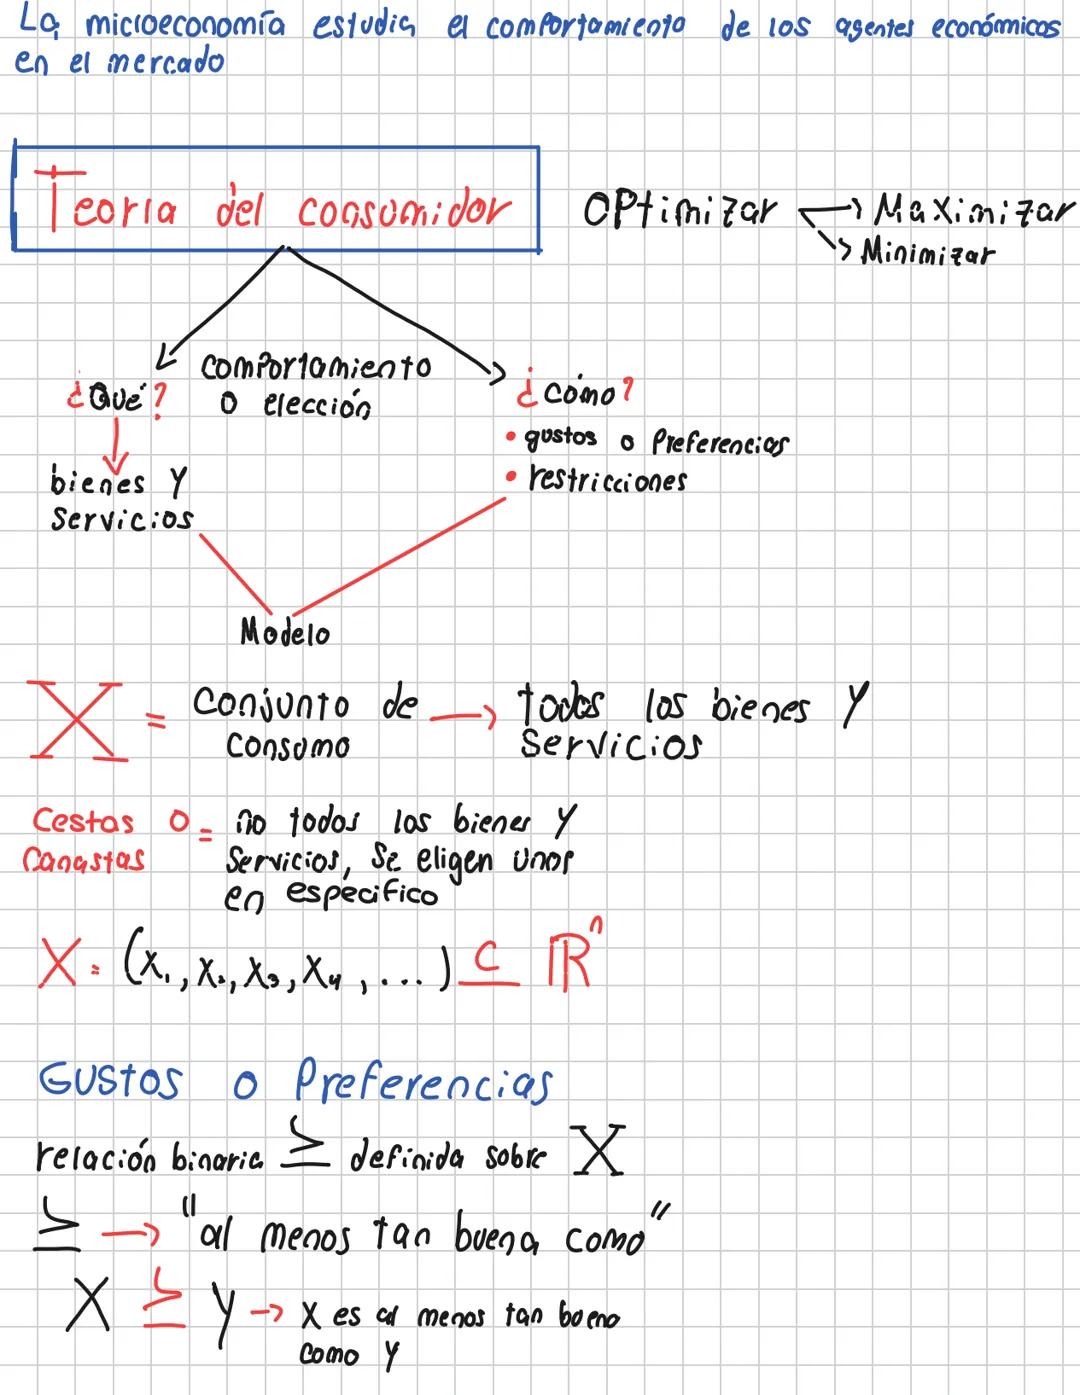 La microeconomía estudia el comportamiento de los agentes económicos
en el mercado
Teoria del consumidor
OPtimizar → Maximizar
→ Minimizar
¿Qué?
comportamiento
o elección
¿cómo?
• gustos o Preferencias
• restricciones
bienes Y
Servicios
Modelo
X = Conjunto de → todos los bienes Y
consumo Servicios
Cestas o = no todos los bienes Y
Canastas Servicios, Se eligen unos
en especifico
X = (x₁, x₂, x₃, x₄, ...) ⊆ ℝⁿ
Gustos o Preferencias
relación binaria ≽ definida sobre X
≽ → "al menos tan buena como"
X ≽ Y → X es al menos tan bueno
como Y